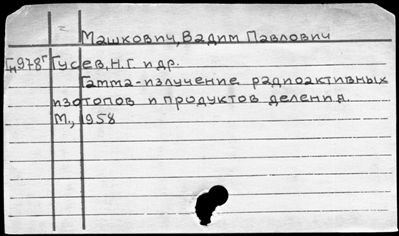 Машкович, Вадим Павлович
Гд978г Гусев, Н.Г. и др.
Гамма-излучение радиоактивных
изотопов и продуктов деления.
М., 1958